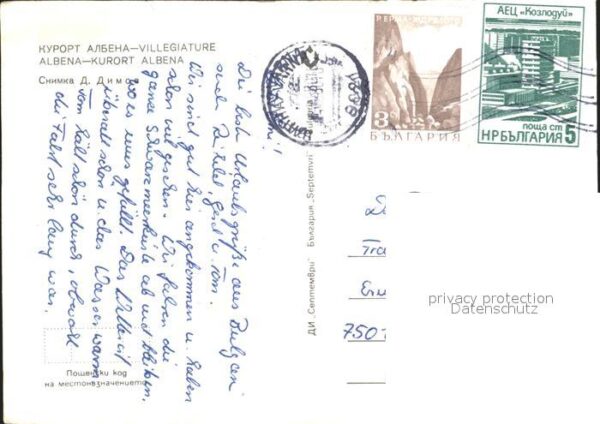 КУРОРТ АЛБЕНА—VILLEGIATURE
ALBENA—KURORT ALBENA
Снимка Д. Димо
Die besten Urlaubsgrüße aus Bulgarien
Wir sind gut hier angekommen u. haben
schon viel gesehen. Wir fahren die
ganze Schwarzmeerküste ab und bleiben,
wo es uns gefällt. Das Wetter ist
überall schön u. das Wasser warm
Tom hält schön durch, obwohl
die Fahrt sehr lang war.
Пощенски код
на местоназначението
ДИ „Септември“ България „Septemvri
VARNA
РЕРМА
3
БЪЛГАРИЯ
АЕЦ „Козлодуй“
поща ст
НР БЪЛГАРИЯ 5
750
privacy protection
Datenschutz